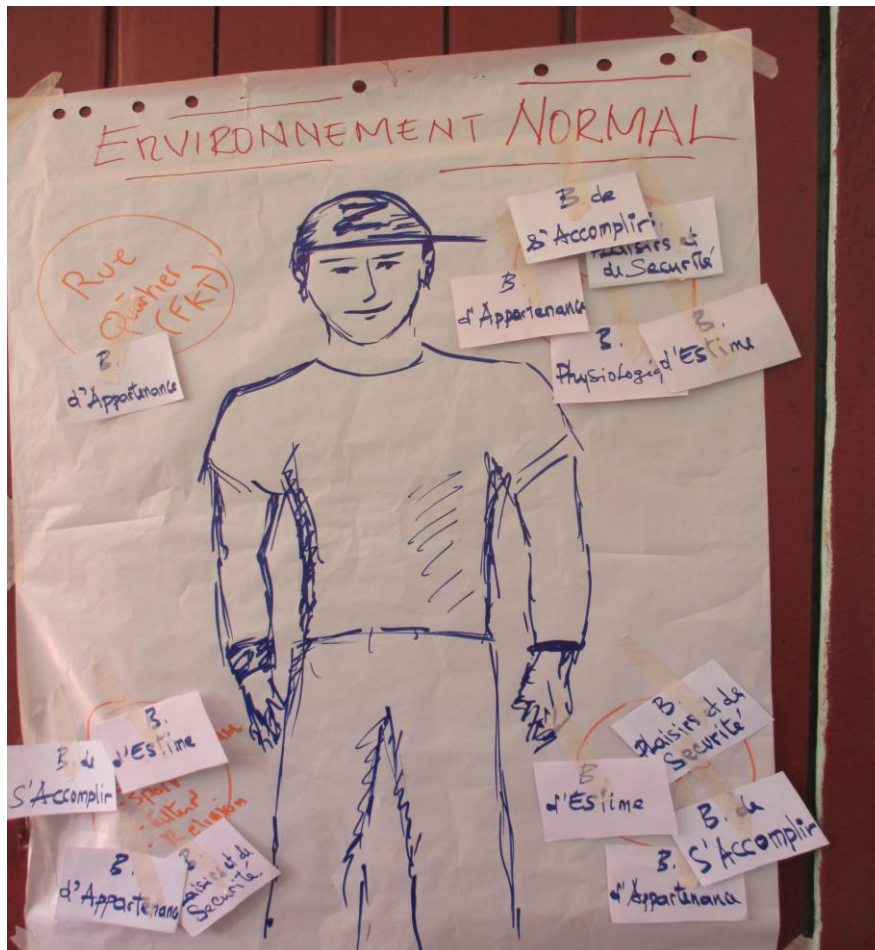 ENVIRONNEMENT NORMAL
Rue
Quartier
(FKT)
B.
d'Appartenance
B. de
S'Accomplir
Plaisirs et
de Securité
B.
d'Appartenance
B.
Physiologiq
B.
d'Estime
B.
d'Estime
B. de
S'Accomplir
Sport
Cultur
- Religion
B.
d'Appartenance
B.
Plaisirs et de
Securité
B
Plaisirs et de
Securité
B
d'Estime
B. de
S'Accomplir
B.
d'Appartenance